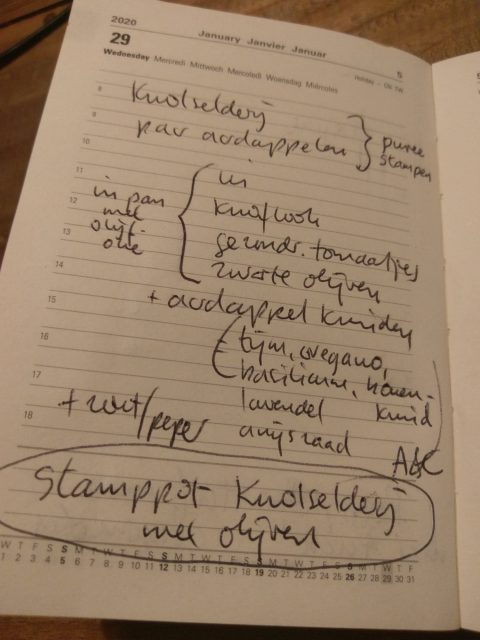 2020
January Janvier Januar
29
5
Wednesday Mercredi Mittwoch Mercoledì Woensdag Miércoles
Holiday -
8
Knolselderij
9
paar aardappelen
puree
stampen
10
11
ui
in pan
met
olijf-
olie
12
knoflook
13
gezondr. tomaatjes
14
zwarte olijven
15
+ aardappel kruiden
16
tijm, oregano,
basilicum, bonen-
kruid
17
lavendel
+ zout/peper
18
anijszaad
Stamppot Knolselderij
met olijven
W T F S S M T W T F S S M T W T F S S M T W T F S S M T W T F
1 2 3 4 5 6 7 8 9 10 11 12 13 14 15 16 17 18 19 20 21 22 23 24 25 26 27 28 29 30 31